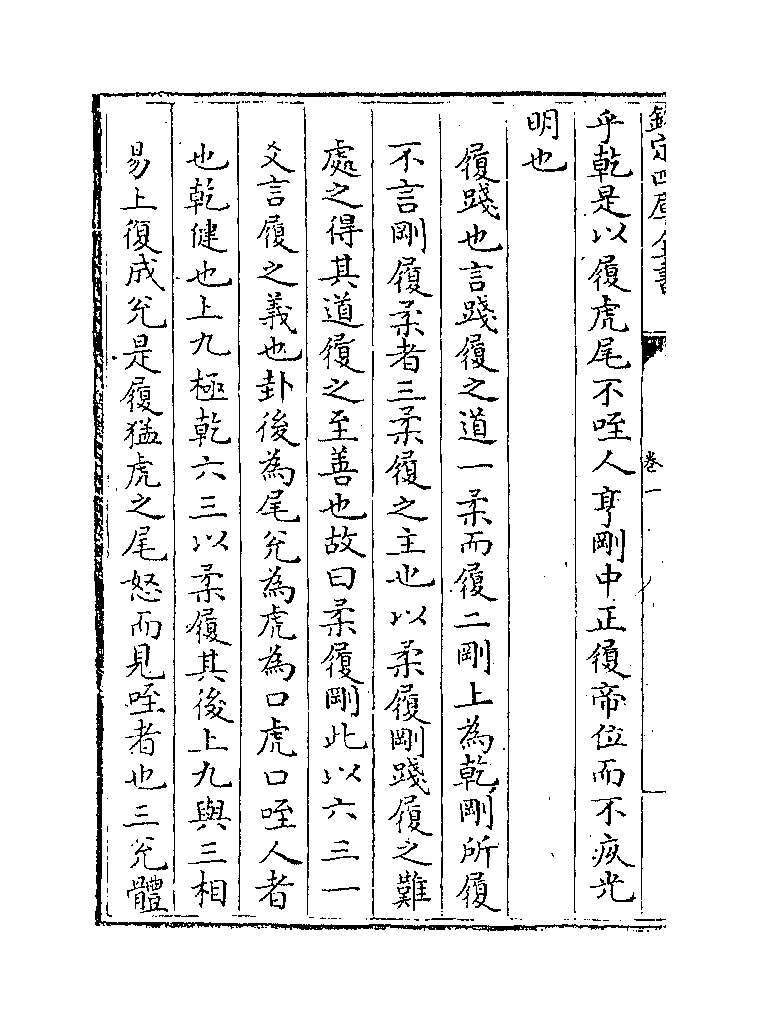 欽定四庫全書
卷一
乎乾是以履虎尾不咥人亨剛中正履帝位而不疚光
明也
履踐也言踐履之道一柔而履二剛上為乾剛所履
不言剛履柔者三柔履之主也以柔履剛踐履之難
處之得其道履之至善也故曰柔履剛此以六三一
爻言履之義也卦後為尾兊為虎為口虎口咥人者
也乾健也上九極乾六三以柔履其後上九與三相
易上復成兊是履猛虎之尾怒而見咥者也三兊體